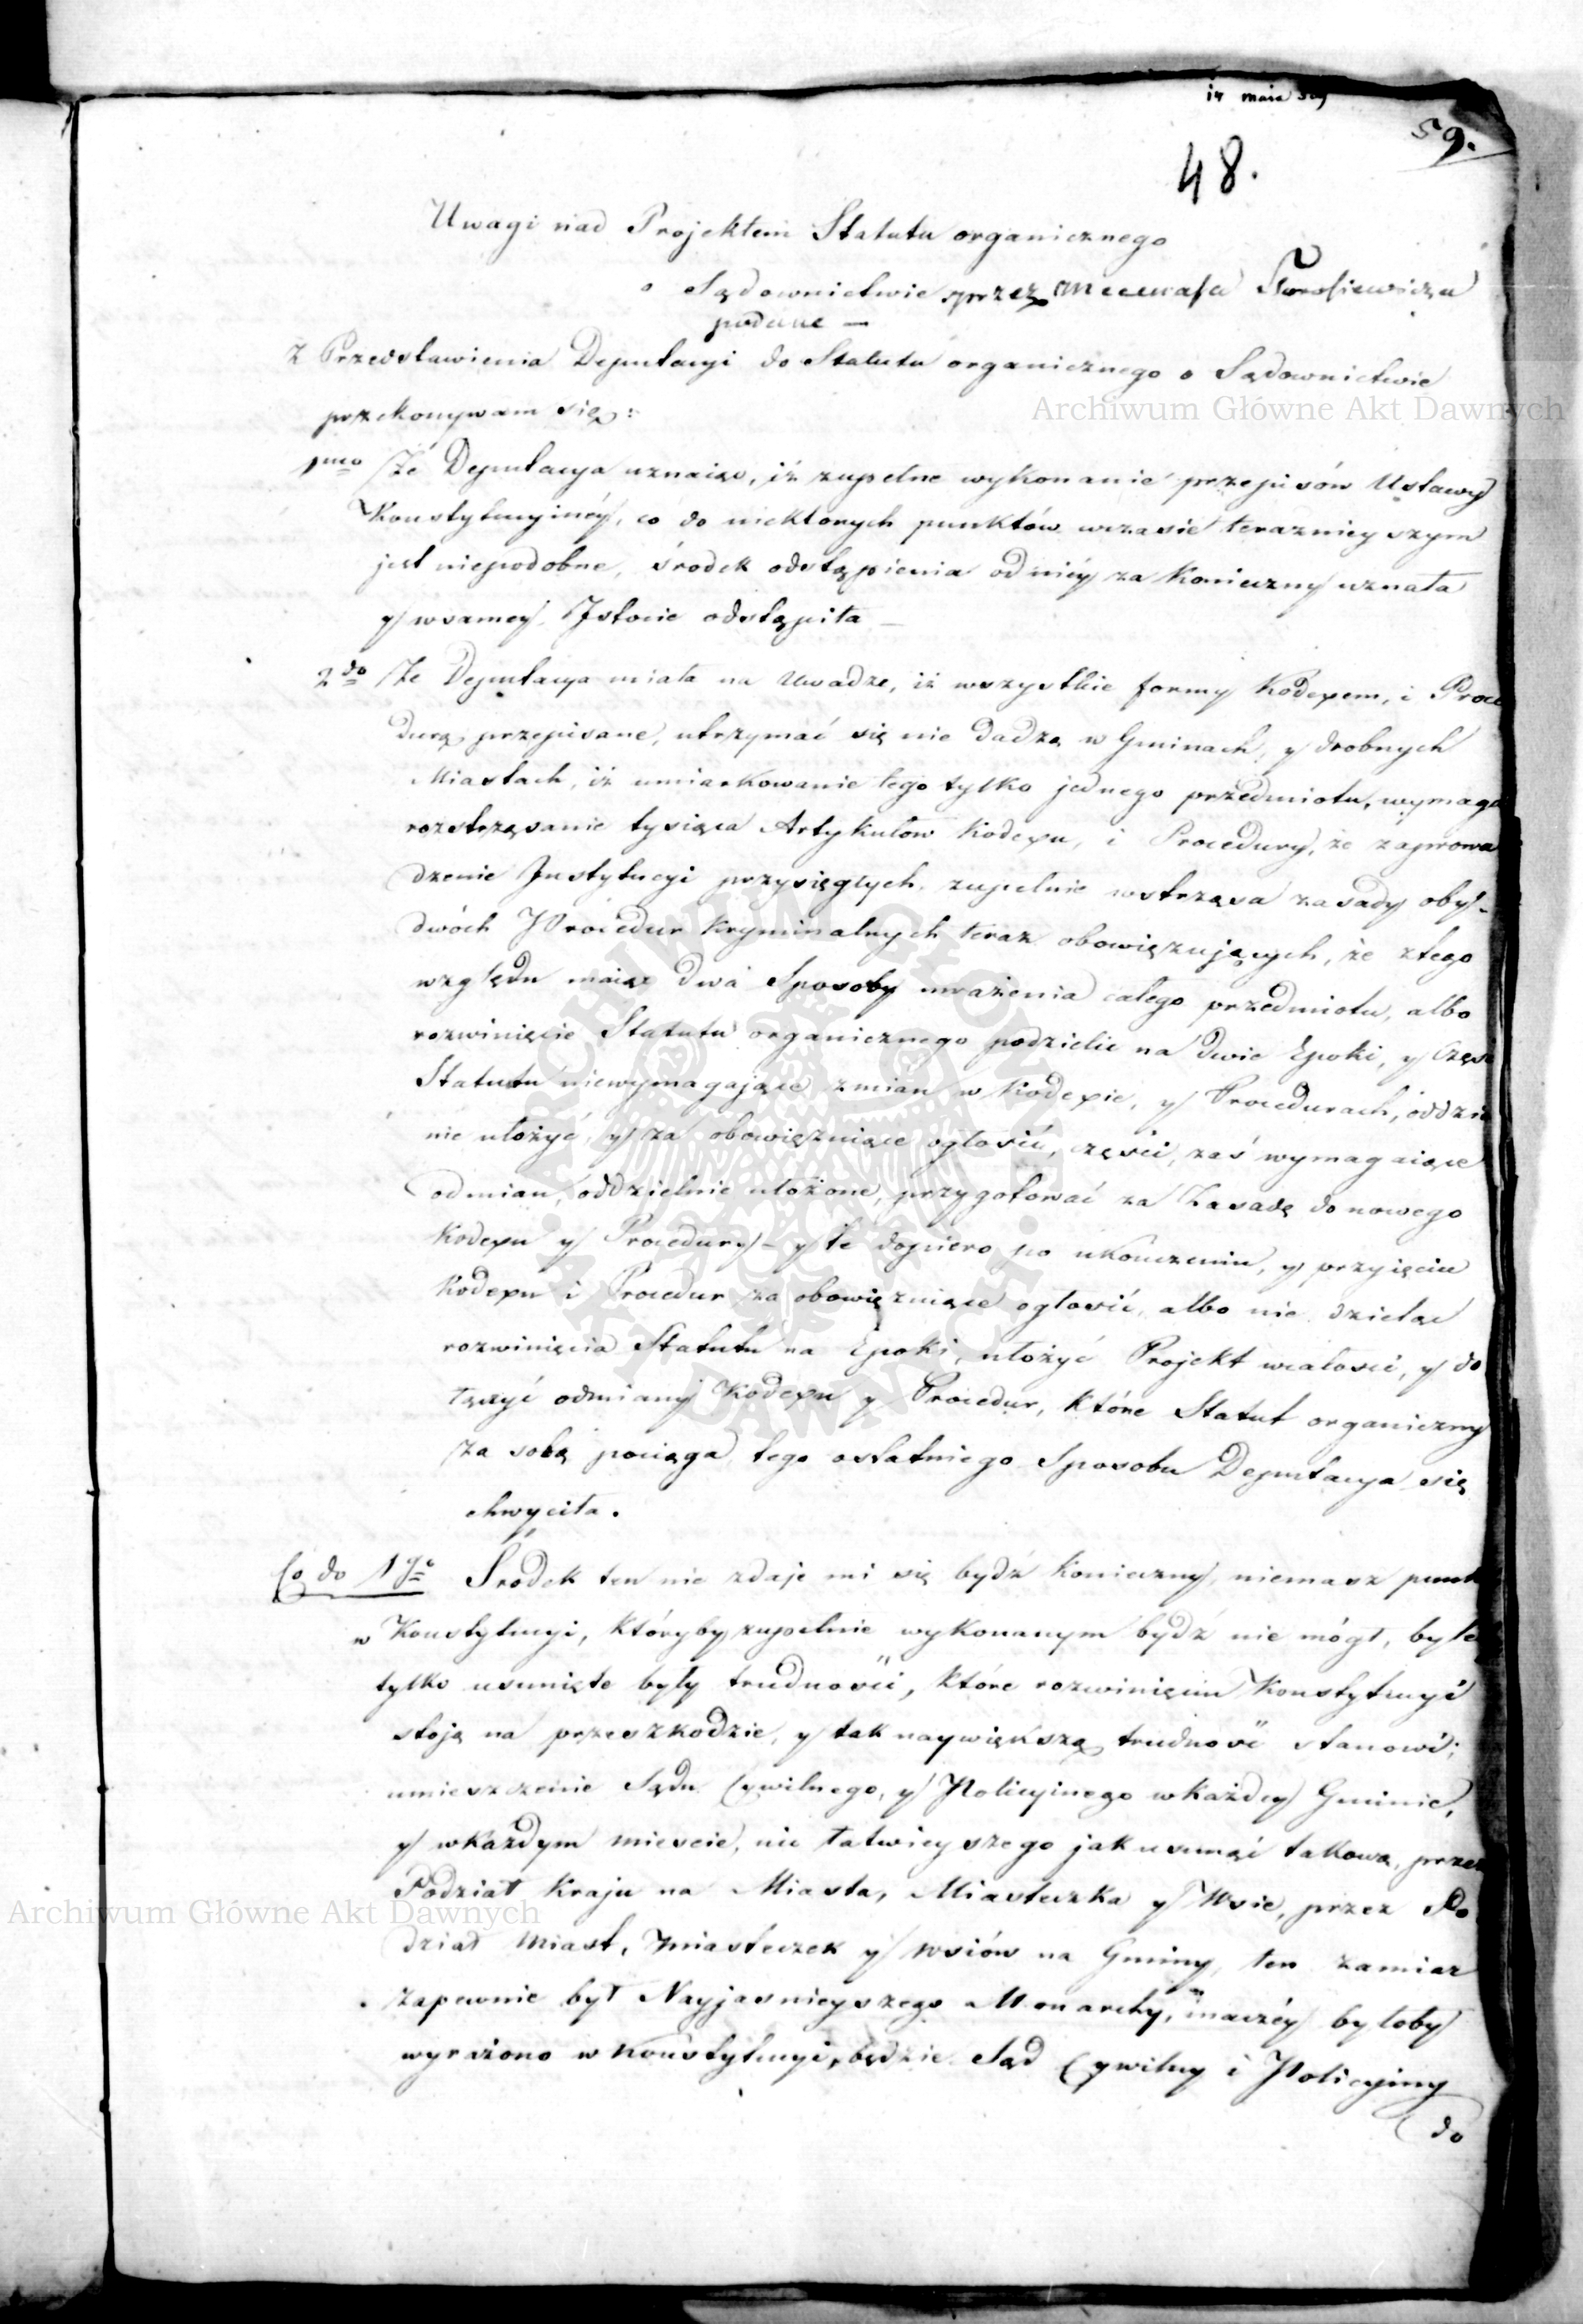 59.
48.
Uwagi nad Projektem Statutu organicznego
o Sądownictwie przez Mecenasa
podane —
Z Przedstawienia Deputacyi do Statutu organicznego o Sądownictwie
przekonywam się:
1mo Że Deputacya uznaiąc, iż zupełne wykonanie przepisów Ustawy
Konstytucyinéy, co do niektorych punktów wczasie terazniey szym
jest niepodobne, środek odstąpienia od niéy za Konieczny uznała
y w samey Istocie odstąpiła —
2do Że Deputacya miała na Uwadze, iż wszystkie formy Kodexem, i Proce
durą przepisane, utrzymać się nie dadzą w Gminach, y drobnych
Miastach, iż umiarkowanie tego tylko jednego przedmiotu, wymaga
roztrząsanie tysiąca Artykułow Kodexu, i Procedury, że záprowa
dzenie Instytucyi przysięgłych zupełnie wstrząsa zasady oby-
dwóch Procedur Kryminalnych teraz obowięzujących, że ztego
względu maiąc dwa Sposoby uważenia całego przedmiotu, albo
rozwinięcie Statutu organicznego podzielić na dwie Epoki, y Częś
Statutu niewymagające zmian w Kodexie, y Procedurach, oddziel
nie ułożyć, y za obowięzuiące ogłosić, części zaś wymagaiące
odmian, oddzielnie ułożone, przygotować za Zasadę do nowego
Kodexu y Procedury – y te dopiero po ukonczeniu, y przyięciu
Kodexu i Procedur za obowięzuiące ogłosić, albo nie dzieląc
rozwinięcia Statutu na Epoki, ułożyć Projekt wcałości, y do
łączyć odmiany Kodexu y Procedur, które Statut organiczny
za sobą pociąga tego ostatniego Sposobu Deputacya się
chwyciła.
Co do 1go Środek ten nie zdaje mi się bydź Konieczny, niemasz punk
w Konstytucyi, któryby zupełnie wykonanym bydź nie mógł, byle
tylko usunięte były trudności, które rozwinięciu Konstytucyi
stoją na przeszkodzie, y tak naywiększą trudność stanowi;
umieszczenie Sądu Cywilnego, y Policyinego w Każdey Gminie,
y w Kazdym miescie, nic łatwieyszego jak usunąć takową, przez
Podział Kraju na Miasta, Miasteczka y Wsie, przez Po
dział Miast, Miasteczek y Wsiów na Gminy, ten zamiar
Zapewnie był Nayjasnieyszego Monarchy, inaczéy byłoby
wyrażono w Konstytucyi, będzie Sąd Cywilny i Policyiny
do
Archiwum Główne Akt Dawnych
Archiwum Główne Akt Dawnych
ARCHIWUM GŁÓWNE AKT DAWNYCH